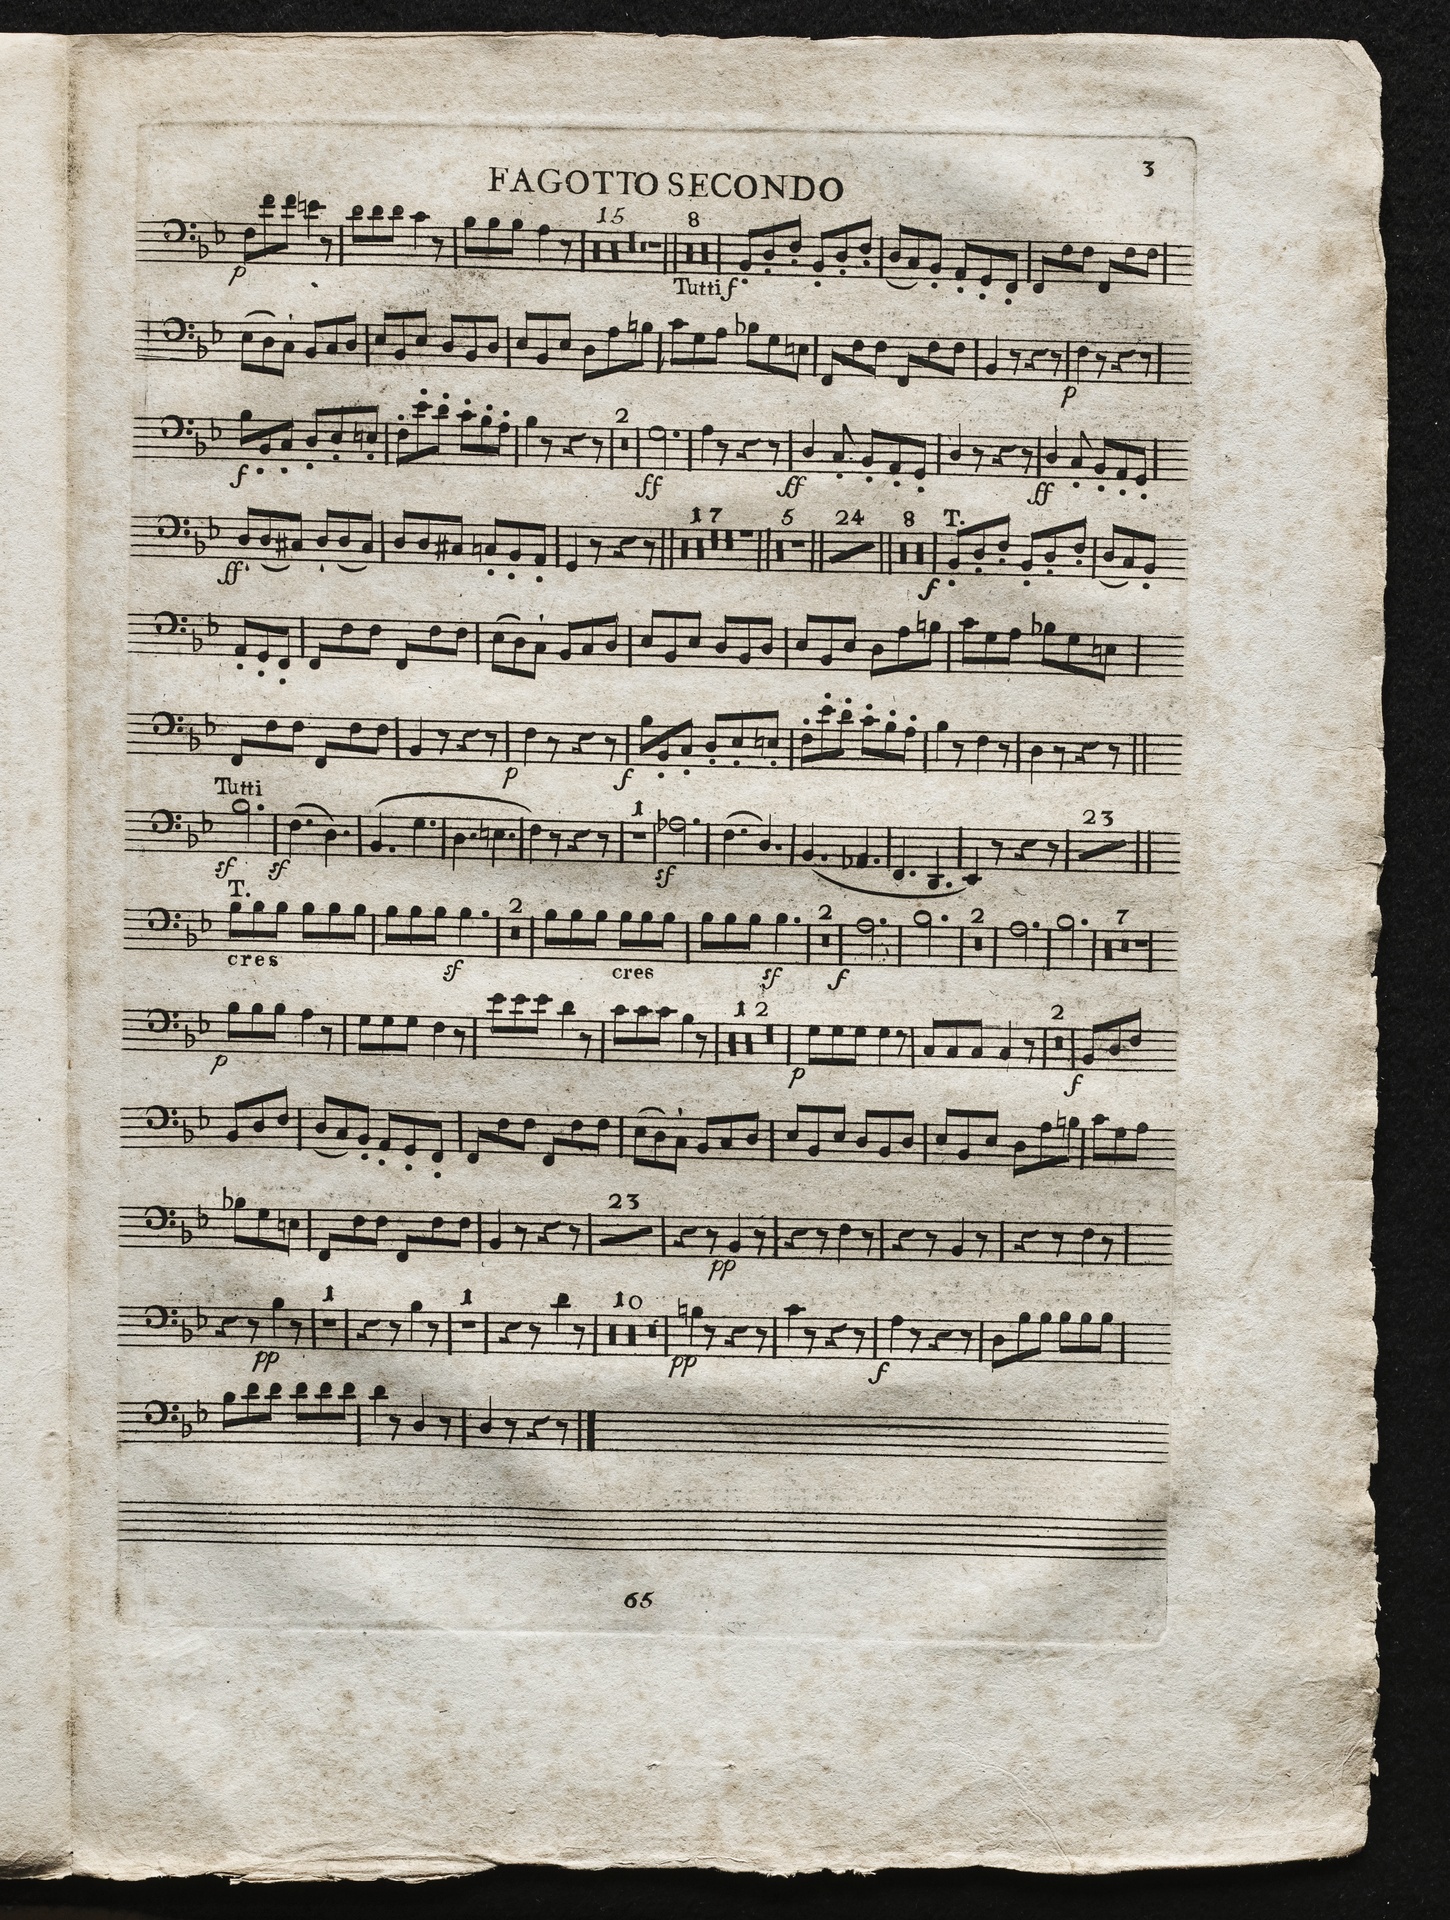 3
FAGOTTO SECONDO
15 8
p Tutti f
p
2
f ff ff ff
17 5 24 8 T.
ff f
p f
Tutti
1 23
sf sf sf
T.
2 2 2 7
cres sf cres sf f
12 2
p p f
23
pp
1 1 10
pp pp f
65